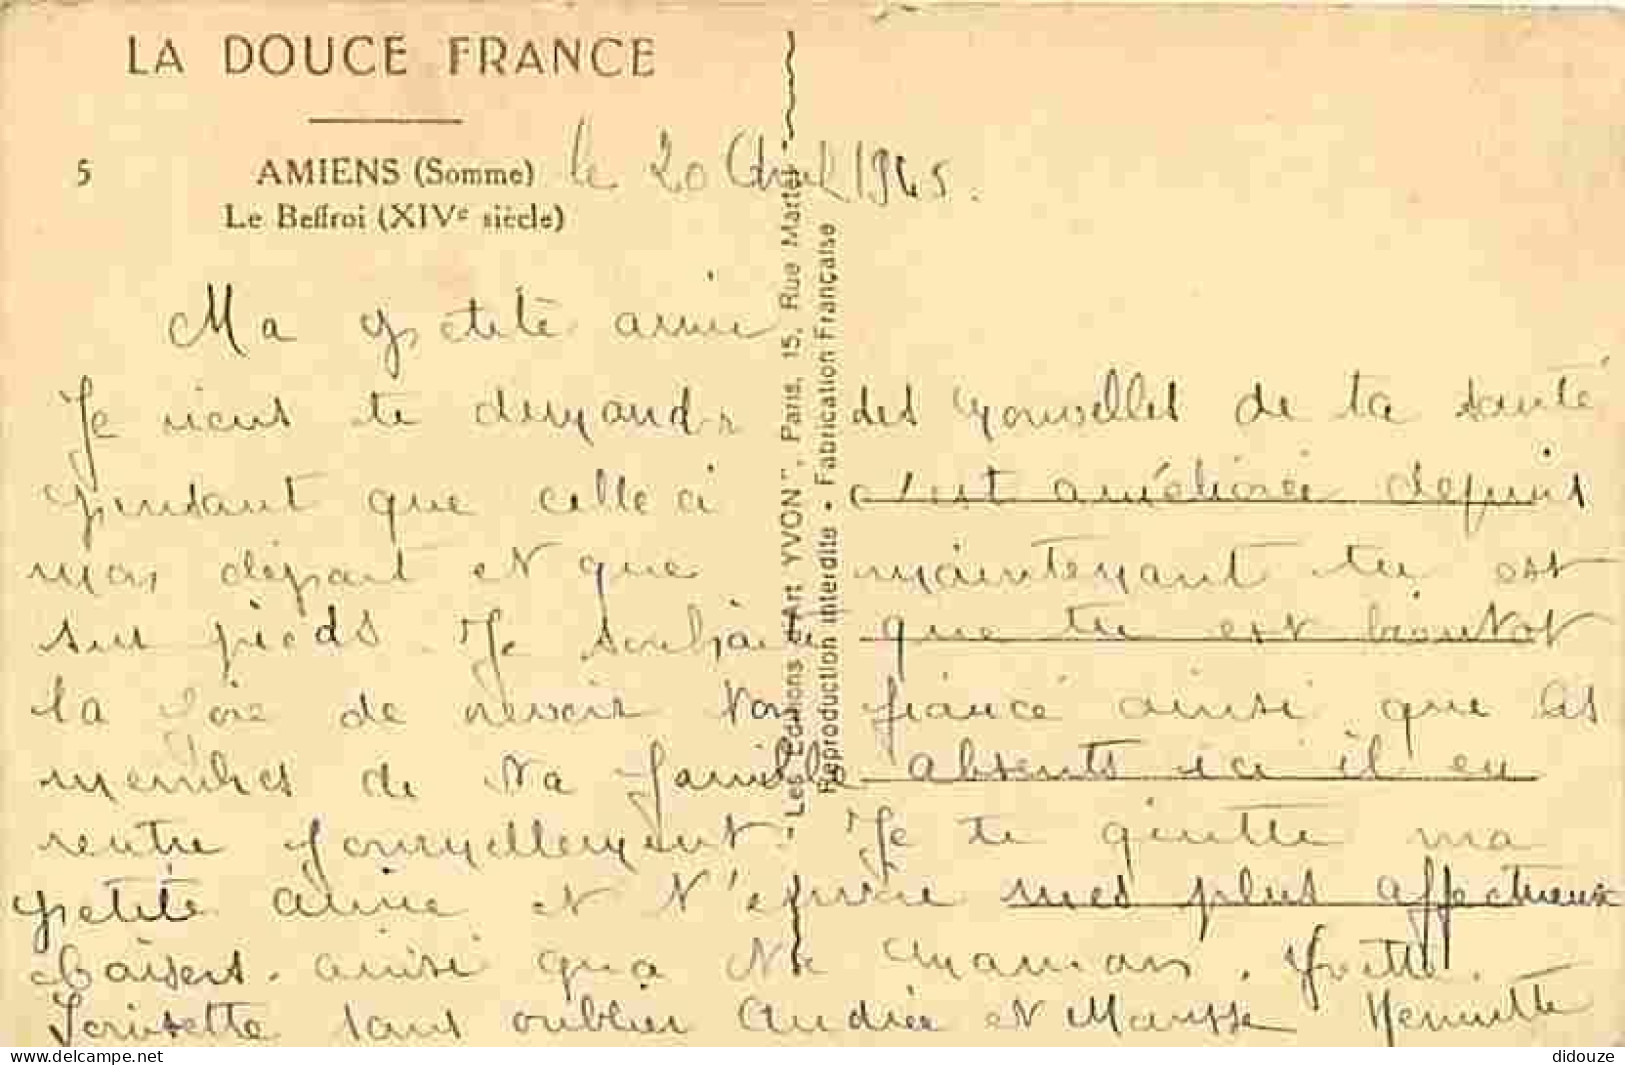 LA DOUCE FRANCE
5 AMIENS (Somme) le 20 Avril 1945.
Le Beffroi (XIVe siècle)
Ma petite amie
Je viens te demander des nouvelles de ta santé
pendant que celle ci c'est améliorée depuis
mon départ et que maintenant tu est
sur pieds. Je souhaite que tu est bientot
la joie de revoir ton fiancé ainsi que les
membres de ta famille absents ici il en
rentre journellement. Je te quitte ma
petite amie et t'envoie mes plus affectueux
baisers. ainsi qu'a ta maman. Yvette.
sans oublier Andrée et Henriette
"Les Editions d'Art YVON", Paris, 15, Rue Martel
Reproduction interdite • Fabrication Française
delcampe.net
didouze